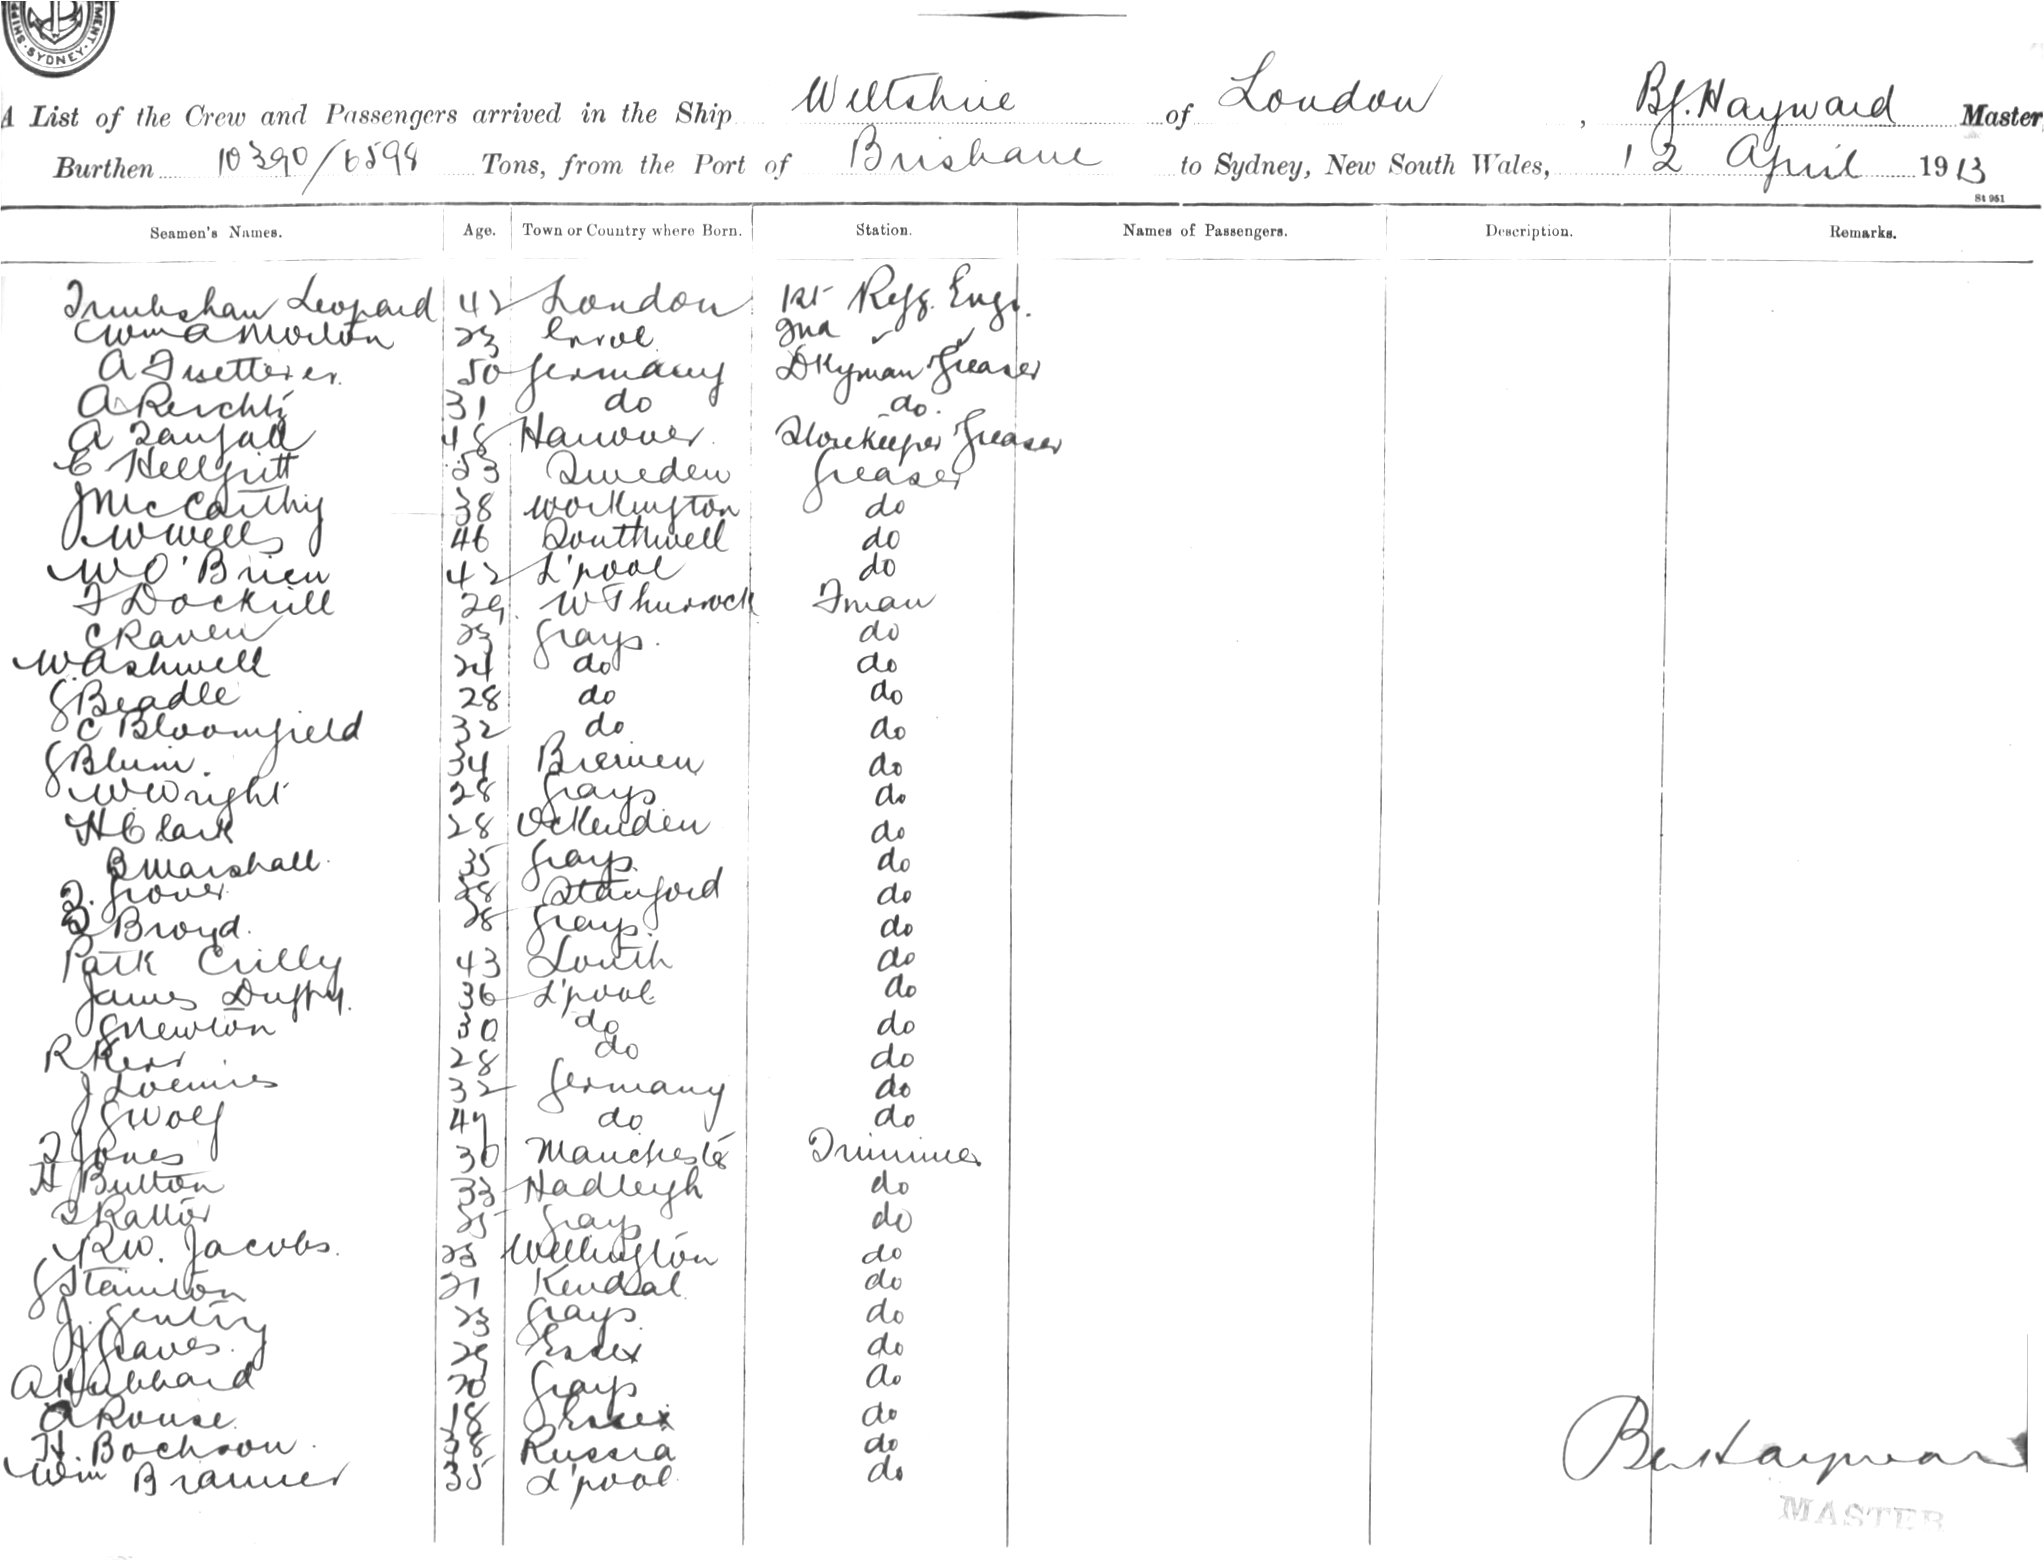 SHIPPING
SYDNEY
A List of the Crew and Passengers arrived in the Ship Wiltshire of London, B.J. Hayward Master
Burthen 10390/6598 Tons, from the Port of Brisbane to Sydney, New South Wales, 12 April 1913
St 951
Seamen's Names. Age. Town or Country where Born. Station. Names of Passengers. Description. Remarks.
Leopard 42 London 1st Refg. Engr.
Wm A Morton 23 Errol 2nd
A 50 Germany Dkyman Greaser
A 31 do do.
A 48 Hanover. Storekeeper Greaser
C 53 Sweden Greaser
J McCarthy 38 Workington do
W Wells 46 Southwell do
W O'Brien 42 L'pool do
F Dockrill 29. W Thurrock Fman
C Raven 23 Grays. do
W. Ashwell 24 do do
G Beadle 28 do do
C Bloomfield 32 do do
G Blum. 34 Bremen do
W Wright 28 Grays do
H Clark 28 Ockenden do
B Marshall. 35 Grays. do
F. Grover. 28 Stanford do
Broyd. 28 Grays. do
Patk Crilly 43 Louth do
James Duffy. 36 L'pool do
G Newton 30 do do
R Kerr 28 do do
J 32 Germany do
G Wolf 47 do do
F Jones 30 Manchester Trimmer
H Button 33 Hadleigh do
25 Grays do
R W. Jacobs. 23 Wellington do
G Stainton 21 Kendal do
J. Gentry 23 Grays do
J Graves. 29 Essex do
A Hubbard 20 Grays do
A Rouse. 18 Essex do
H. Bochson. 38 Russia do
Wm Branner 35 L'pool do
B J Hayward
MASTER